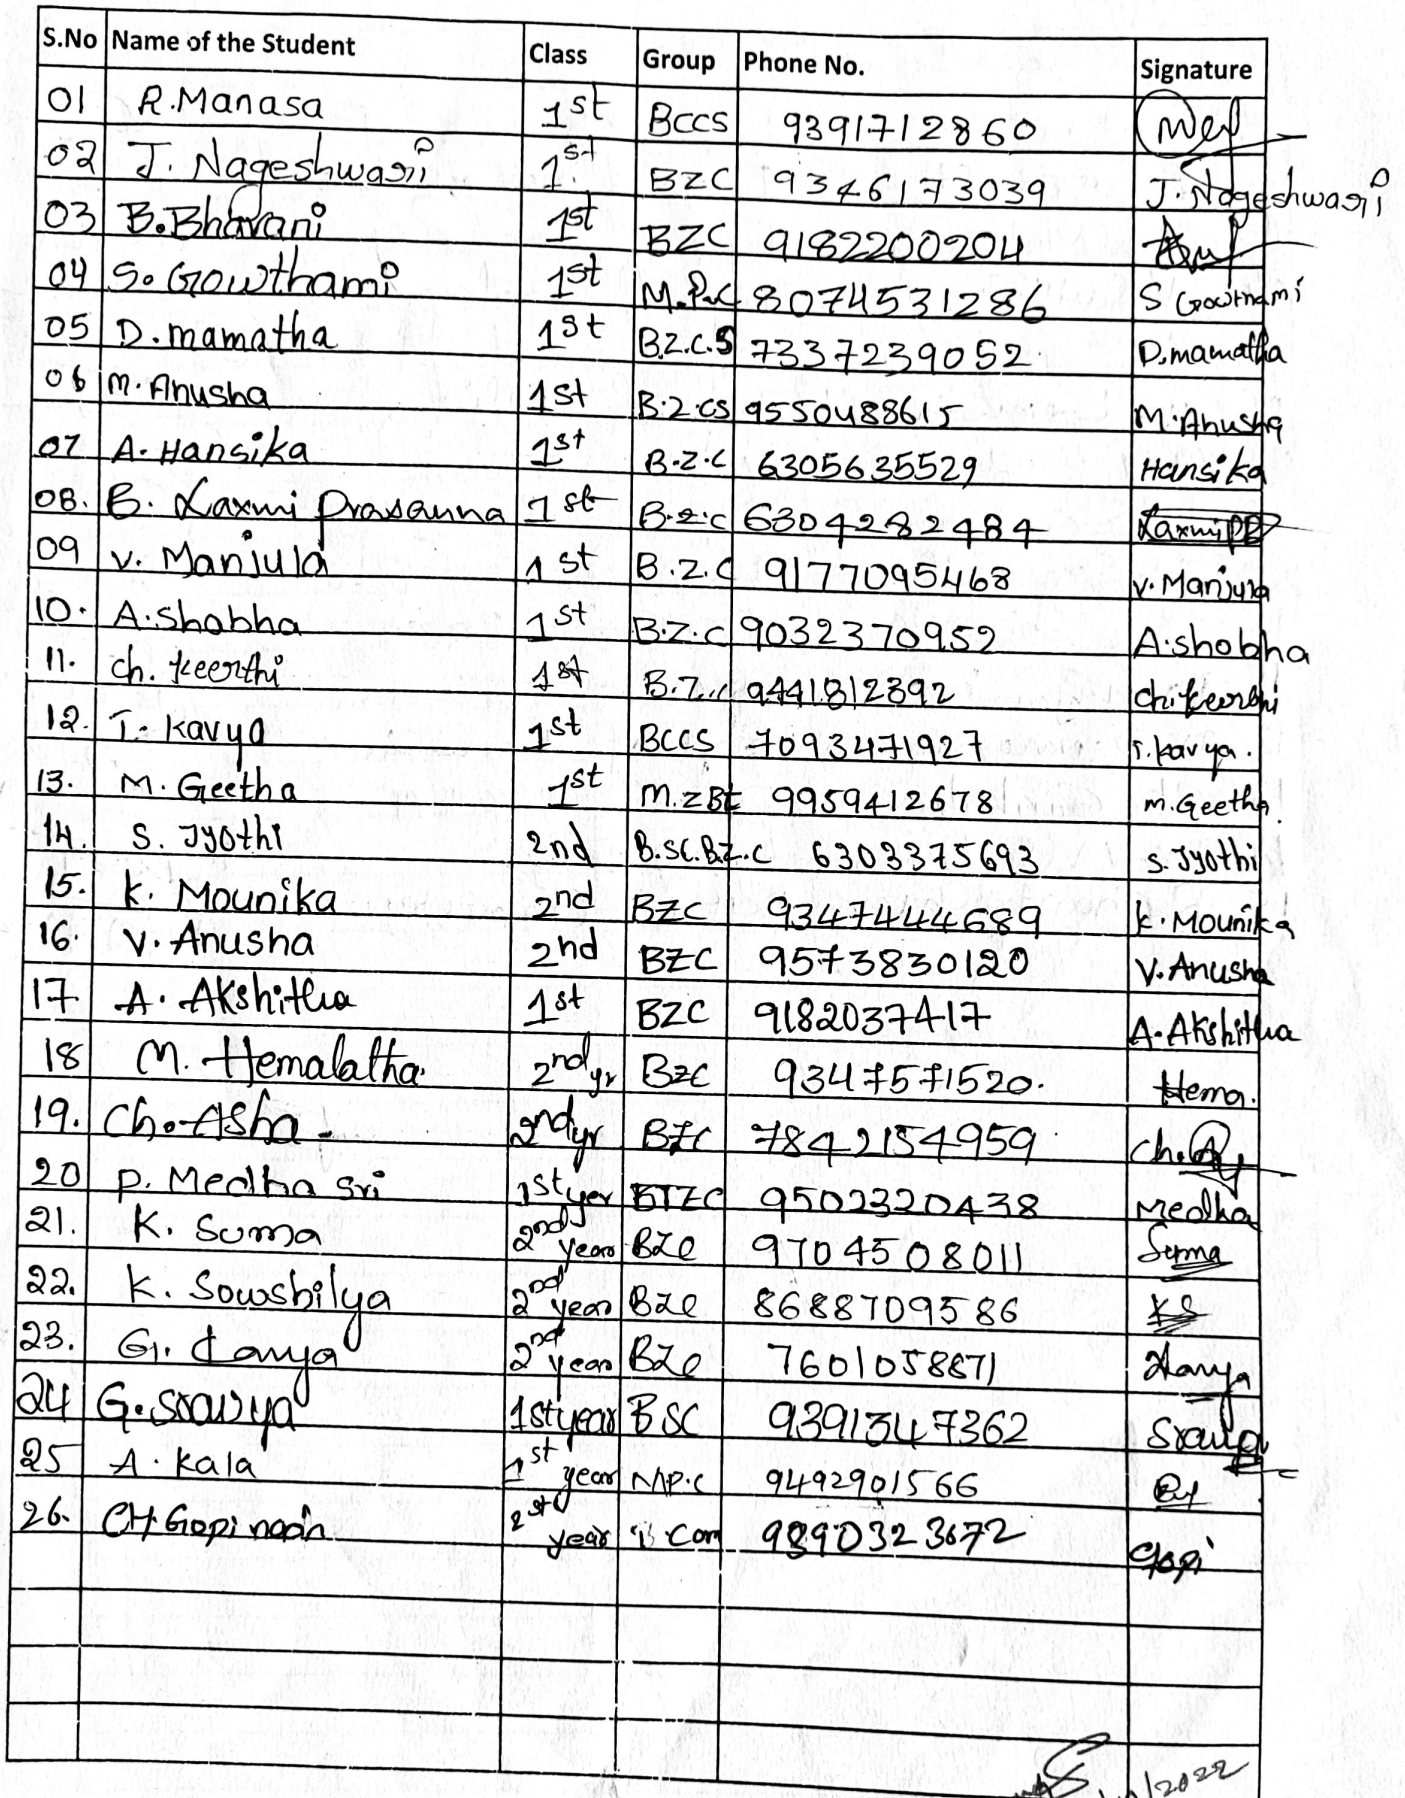 S.No Name of the Student Class Group Phone No. Signature
01 R.Manasa 1st BCCS 9391712860
02 J. Nageshwari 1st BZC 9346173039 J. Nageshwari
03 B.Bhavani 1st BZC 9182200204
04 S. Gowthami 1st M.P.C 8074531286 S Gowthami
05 D.mamatha 1st B.Z.C.S 7337239052 D.mamatha
06 M.Anusha 1st B.Z.CS 9550488615 M.Anusha
07 A. Hansika 1st B.Z.C 6305635529 Hansika
08. B. Laxmi Prasanna 1st B.Z.C 6304282484
09 V. Manjula 1st B.Z.C 9177095468 V. Manjula
10. A.Shobha 1st B.Z.C 9032370952 A.shobha
11. ch. keerthi 1st 9441812392 ch.keerthi
12. T. Kavya 1st BCCS 7093471927 T.kavya.
13. M. Geetha 1st M.ZBC 9959412678 m.Geetha
14. S. Jyothi 2nd B.SC.B.Z.C 6303375693 S.Jyothi
15. K. Mounika 2nd BZC 9347444689 K.Mounika
16. V. Anusha 2nd BZC 9573830120 V.Anusha
17 A. Akshitha 1st BZC 9182037417 A.Akshitha
18 M. Hemalatha 2nd yr BZC 9347571520. Hema.
19. Ch. Asha 2nd yr BZC 7842154959 Ch.
20 P. Medha Sri 1st year BTZC 9502320438 Medha
21. K. Suma 2nd year BZC 9704508011 Suma
22. K. Sowshilya 2nd year BZC 8688709586 KS
23. G. Lavya 2nd year BZC 7601058871
24 G. Sravya 1st year BSC 9391347362 Sravya
25 A. Kala 1st year MP.C 9492901566
26. CH.Gopinadh year B Com 9890323672 Gopi
2022